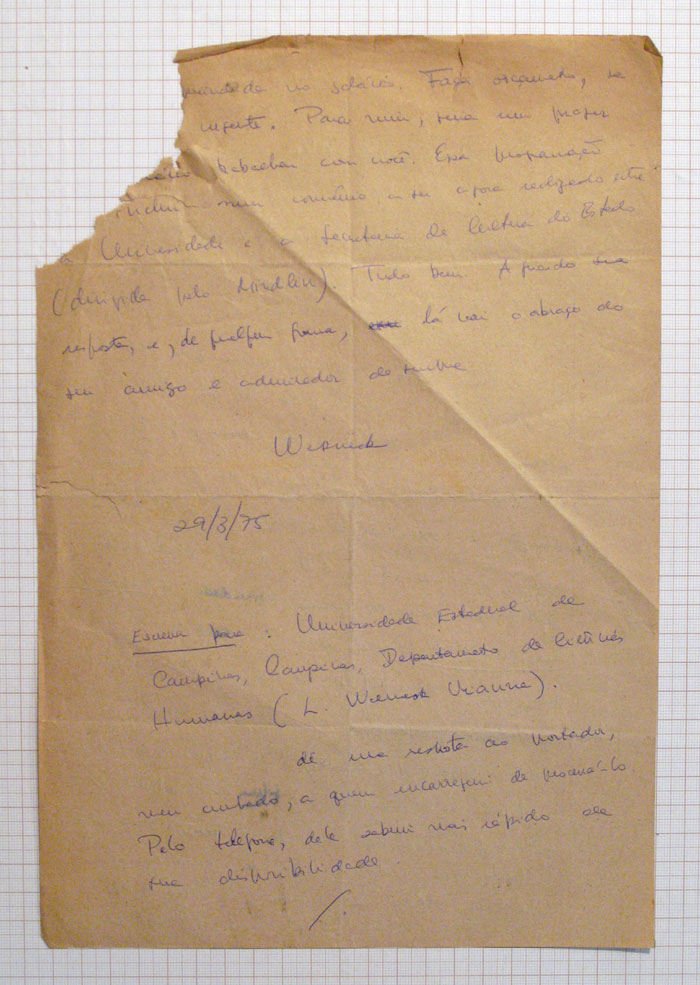 no salário. Faça orçamento, se
urgente. Para mim, seria um prazer
trabalhar com você. Essa programação
num convênio a ser agora realizado entre
a Universidade e a Secretaria de Cultura do Estado
(dirigida pelo Mindlin). Tudo bem. Aguardo sua
resposta, e, de qualquer forma, lá vai o abraço do
seu amigo e admirador de sempre
Werneck
29/3/75
Escreva para: Universidade Estadual de
Campinas, Campinas, Departamento de Ciências
Humanas (L. Werneck Vianna).
dê uma resposta ao portador,
meu cunhado, a quem encarreguei de procurá-lo.
Pelo telefone, dele saberei mais rápido da
sua disponibilidade.